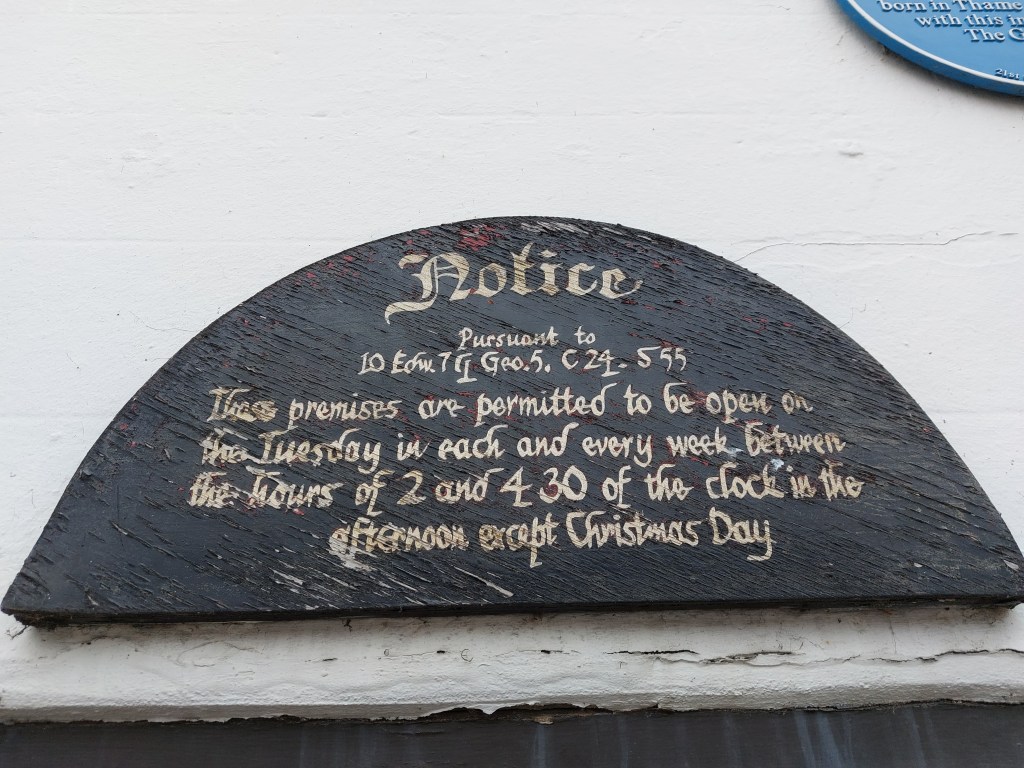 born in Thame
with this in
The G
21st
Notice
Pursuant to
10 Edw. 7 & Geo. 5. C 24. S 55
These premises are permitted to be open on
the Tuesday in each and every week between
the hours of 2 and 4 30 of the clock in the
afternoon except Christmas Day